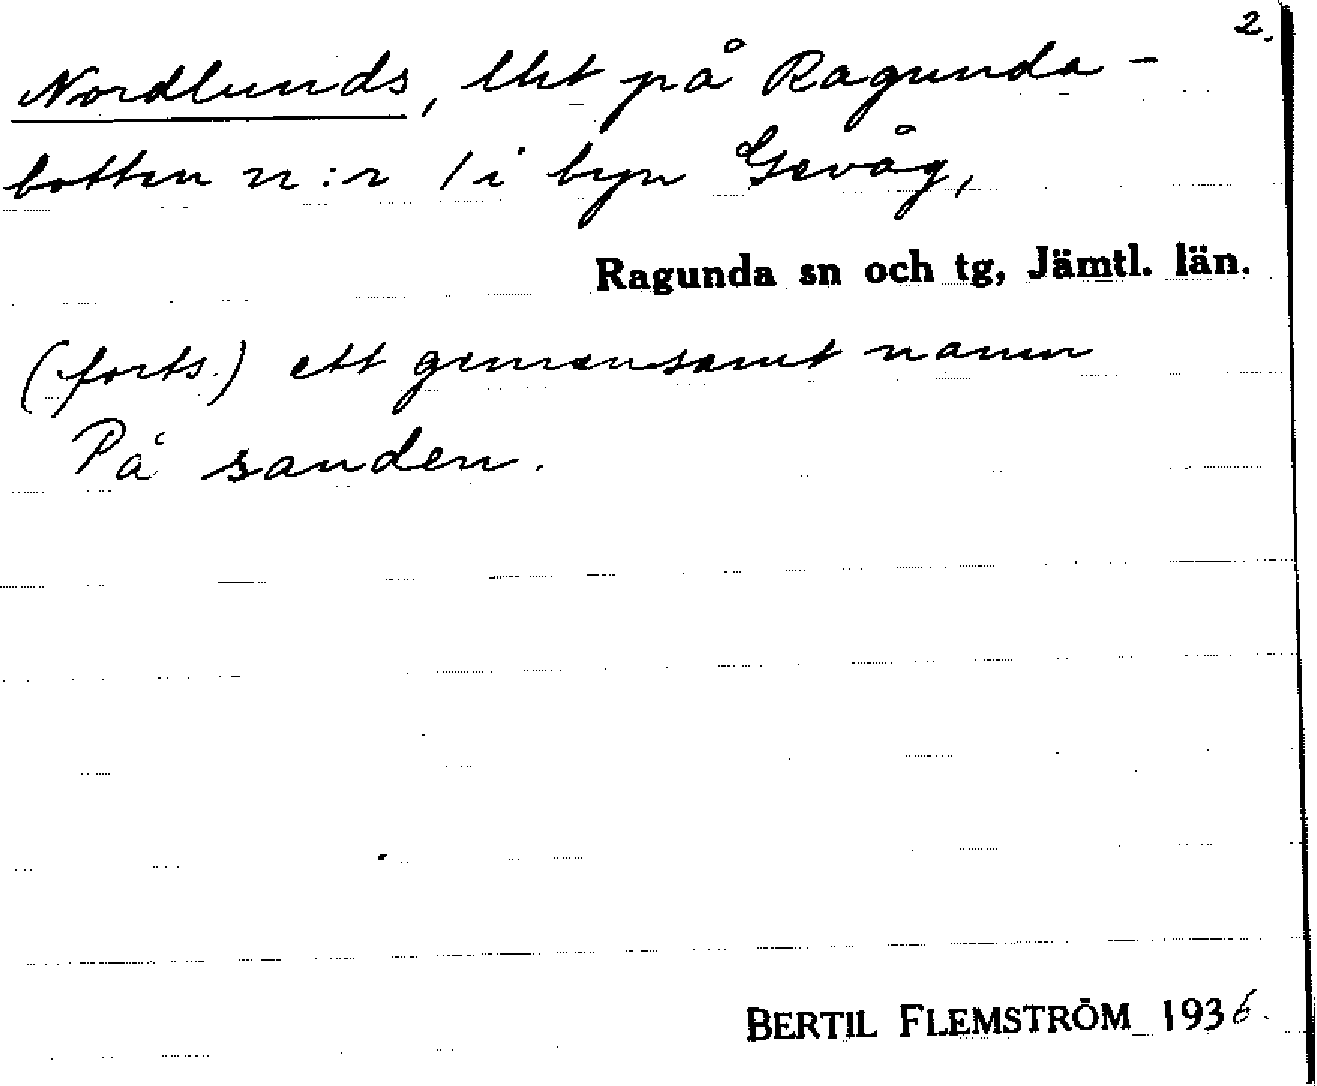 2.
Nordlunds, lht på Ragunda-
botten n:r 1 i byn Gevåg,
Ragunda sn och tg, Jämtl. län.
(forts.) ett gemensamt namn
På sanden.
BERTIL FLEMSTRÖM 1936.